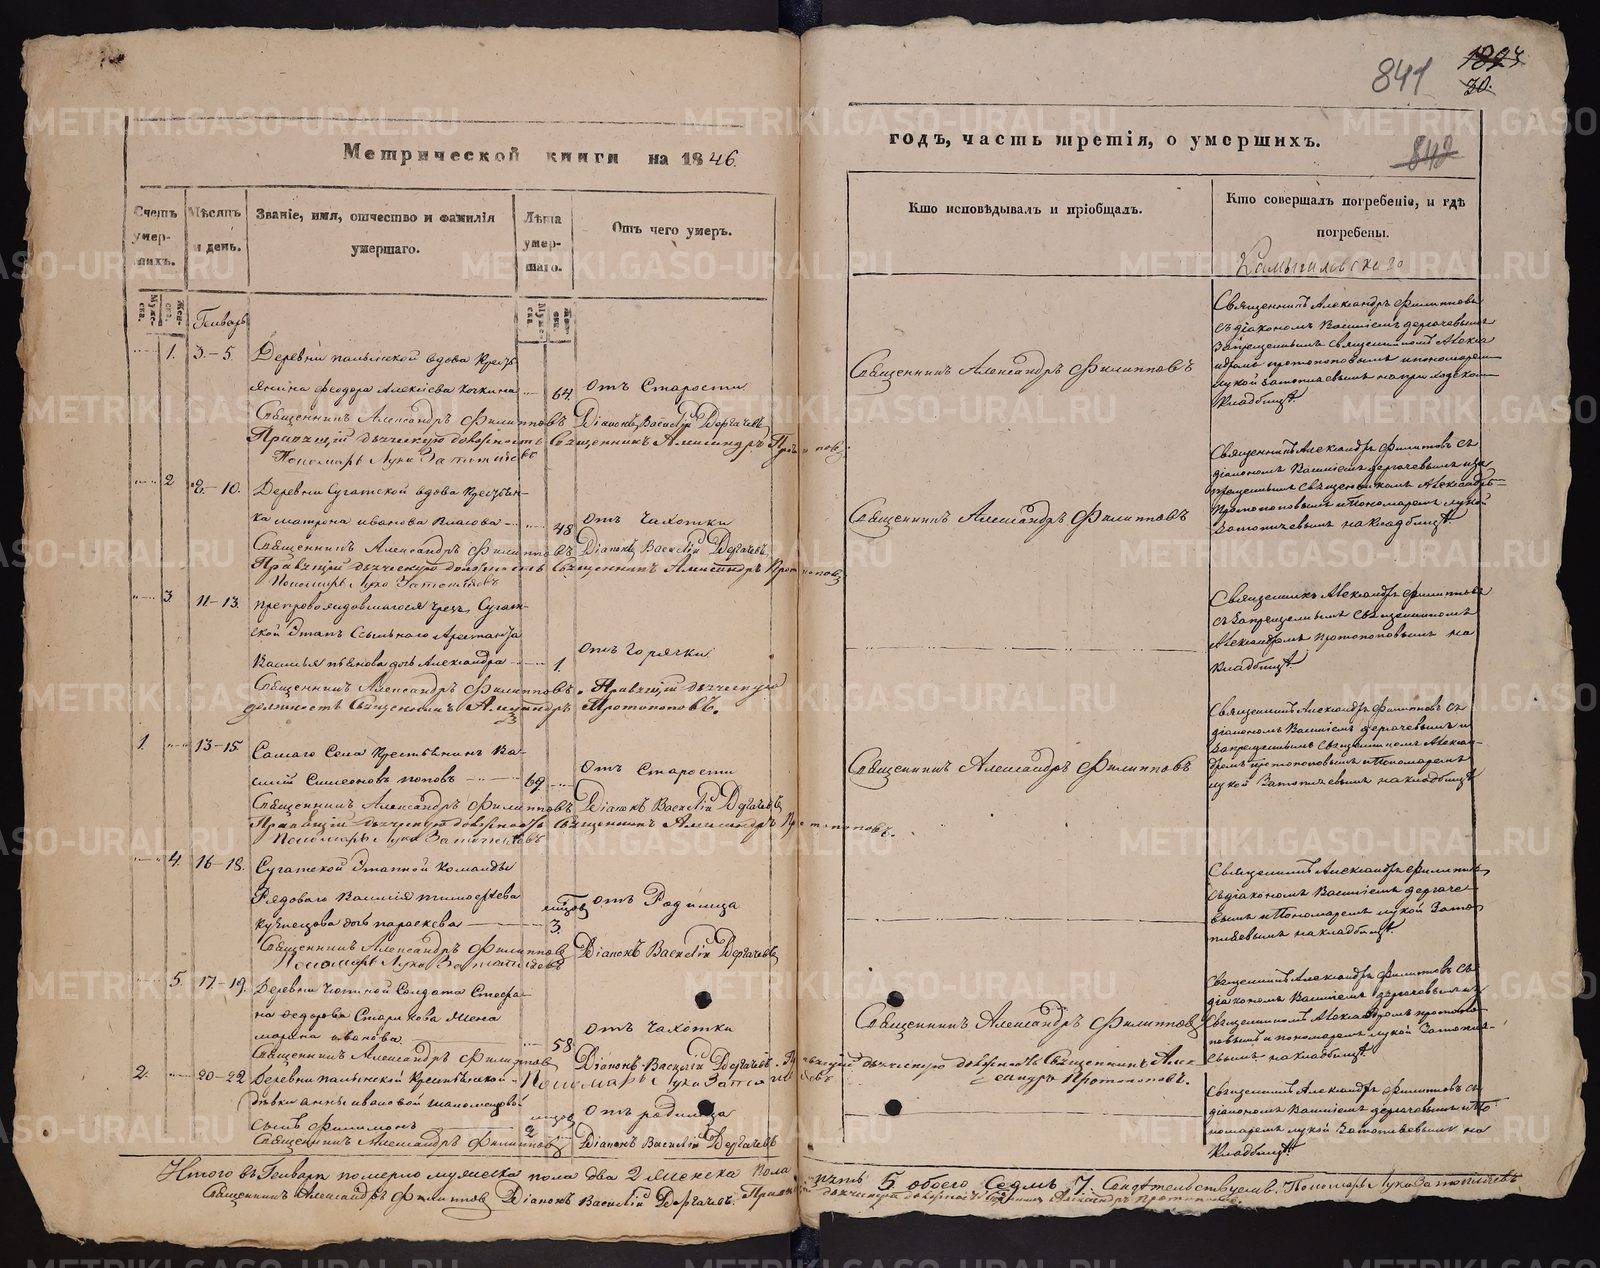 841
1824
30.
842
Метрической книги на 1846.
годъ, часть третія, о умершихъ.
Счетъ умер-шихъ.
Мужеска.
Женска.
Мѣсяцъ и день.
Званіе, имя, отчество и фамилія умершаго.
Лѣта умер-шаго.
Мужеска.
Женска.
Отъ чего умеръ.
Кто исповѣдывалъ и пріобщалъ.
Кто совершалъ погребеніе, и гдѣ погребены.
Генварь
1. 3.-5.
Деревни вдова Кресть
янина Феодора Алексіева
64.
отъ Старости
Священникъ Александръ Филипповъ Діаконъ Василій Дергачевъ
Правящій дьяческую должность Священникъ Александръ Протопоповъ.
Пономарь Лука
Священникъ Александръ Филипповъ
Священникъ Александръ Филипповъ
съ діакономъ Василіемъ Дергачевымъ
Запрещеннымъ Священникомъ Алекса
ндромъ Протопоповымъ и пономаремъ
Лукой на приходскомъ
Кладбищѣ.
2 8.-10.
Деревни Сугатской вдова Крестьян-
ка Матрона Иванова
48
отъ Чахотки
Священникъ Александръ Филипповъ Діаконъ Василій Дергачевъ
Правящій дьяческую должность Священникъ Александръ Протопоповъ
Пономарь Лука
Священникъ Александръ Филипповъ
Священникъ Александръ Филиповъ съ
діакономъ Василіемъ Дергачевымъ
Священникомъ Александромъ
Протопоповымъ и Пономаремъ Лукой
на кладбищѣ.
3. 11-13.
препровождавшагося чрезъ Сугат-
ской Этапъ Ссыльнаго Арестанта
Василья дочь Александра
1
отъ Горячки
Священникъ Александръ Филипповъ. Правящій дьяческую
должность Священникъ Александръ Протопоповъ.
Священникъ Александръ Филиповъ
съ Запрещеннымъ Священникомъ
Александромъ Протопоповымъ на
Кладбищѣ.
1. 13-15.
Самаго Села Крестьянинъ Ва-
силій Симеоновъ Поповъ
69
отъ Старости
Священникъ Александръ Филипповъ Діаконъ Василій Дергачевъ
Правящій дьяческую должность Священникъ Александръ Протопоповъ.
Пономарь Лука
Священникъ Александръ Филипповъ
Священникъ Александръ Филиповъ съ
діакономъ Василіемъ Дергачевымъ и
Запрещеннымъ Священникомъ Алексан-
дромъ Протопоповымъ и Пономаремъ
Лукой на кладбищѣ
4. 16-18.
Сугатской Этапной Команды
Рядоваго Василія Тимофеева
Кузнецова дочь Параскева
3.
отъ Родимца
Священникъ Александръ Филипповъ Діаконъ Василій Дергачевъ
Пономарь Лука
Священникъ Александръ Филиповъ
съ діакономъ Василіемъ Дергаче-
вымъ и Пономаремъ Лукой
на кладбищѣ.
5 17-19.
Деревни Солдата Стефа-
на Федорова Старикова Жена
Марина Иванова
58
отъ Чахотки
Священникъ Александръ Филипповъ Діаконъ Василій Дергачевъ. Правящій дьяческую должность Священникъ Але-
ксандръ Протопоповъ.
Пономарь Лука
Священникъ Александръ Филипповъ
Священникъ Александръ Филиповъ съ
діакономъ Василіемъ Дергачевымъ и
Священникомъ Александромъ Протопо-
повымъ и пономаремъ Лукой
на кладбищѣ
2. 20-22
Деревни Крестьянской
дѣвки Анны Ивановой
сынъ Филимонъ
2
отъ родимца
Священникъ Александръ Филипповъ Діаконъ Василій Дергачевъ
Священникъ Александръ Филиповъ съ
діакономъ Василіемъ Дергачевымъ и По
номаремъ Лукой на
Кладбищѣ
Итого въ Генварѣ померло мужеска пола два 2 женска пола пять 5 обоего Седмь 7. Свидѣтельствуемъ. Пономарь Лука
Священникъ Александръ Филиповъ Діаконъ Василій Дергачевъ. Правящій дьяческую должность Священникъ Александръ Протопоповъ.
METRIKI.GASO-URAL.RU